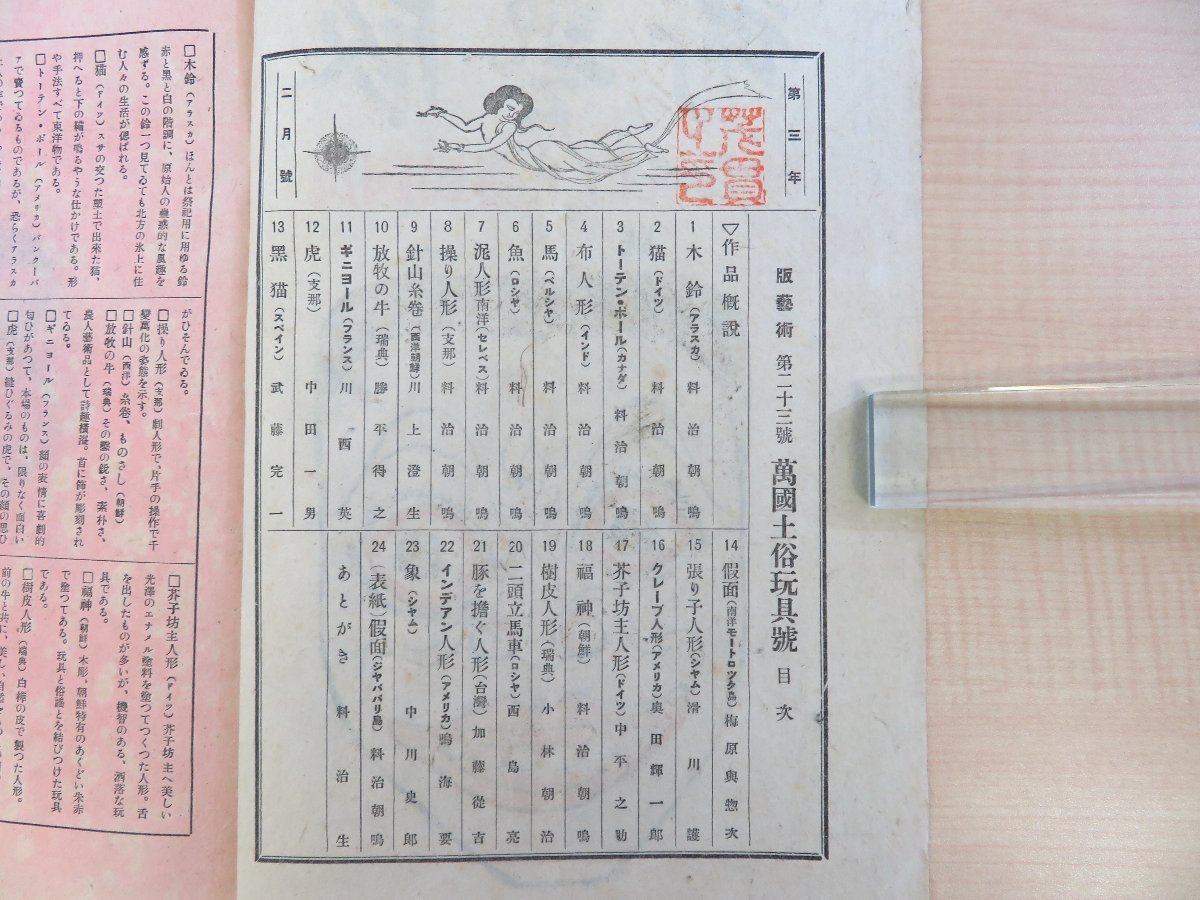 第三年
二月號
版藝術 第二十三號 萬國土俗玩具號 目次
▽作品概説
1 木鈴(アラスカ) 料治朝鳴
2 猫(ドイツ) 料治朝鳴
3 トーテン・ポール(カナダ) 料治朝鳴
4 布人形(インド) 料治朝鳴
5 馬(ペルシヤ) 料治朝鳴
6 魚(ロシヤ) 料治朝鳴
7 泥人形南洋(セレベス) 料治朝鳴
8 操り人形(支那) 料治朝鳴
9 針山糸卷(西洋朝鮮) 川上澄生
10 放牧の牛(瑞典) 勝平得之
11 ギニヨール(フランス) 川西英
12 虎(支那) 中田一男
13 黑猫(スペイン) 武藤完一
14 假面(南洋モートロツク島) 梅原與惣次
15 張り子人形(シヤム) 滑川護
16 クレープ人形(アメリカ) 奥田輝一郎
17 芥子坊主人形(ドイツ) 中平之助
18 福神(朝鮮) 料治朝鳴
19 樹皮人形(瑞典) 小林朝治
20 二頭立馬車(ロシヤ) 西島亮
21 豚を擔ぐ人形(台灣) 加藤從吉
22 インデアン人形(アメリカ) 鳴海要
23 象(シヤム) 中川史郎
24 (表紙)假面(ジヤバパリ島) 料治朝鳴
あとがき 料治生
□木鈴(アラスカ)ほんとは祭祀用に用ゆる鈴
赤と黑と白の階調に、原始人の蠱惑的な風趣を
感ずる。この鈴一つ見てゐても北方の氷上に住
む人々の生活が偲ばれる。
□猫(ドイツ)スサの交つた塑土で出來た猫、
押へると下の鞴が鳴るやうな仕かけである。形
や手法すべて東洋物である。
□トーテン・ポール(アメリカ)バンクーバ
アで賣つてゐるものであるが、恐らくアラスカ
がひそんでゐる。
□操り人形(支那)劇人形で、片手の操作で千
變萬化の姿態を示す。
□針山(西洋)糸卷、ものさし(朝鮮)
□放牧の牛(瑞典)その鑿の銳さ、素朴さ、
農人藝術品として詩趣橫溢。首に飾が彫刻され
てゐる。
□ギニヨール(フランス)顏の表情に喜劇的
匂ひがあつて、本場のものは、限りなく面白い
□虎(支那)縫ひぐるみの虎で、その顏の思ひ
□芥子坊主人形(ドイツ)芥子坊主へ美しい
光澤のエナメル塗料を塗つてつくつた人形。舌
を出したものが多いが、機智のある、洒落な玩
具である。
□福神(朝鮮)木彫、朝鮮特有のあくどい朱赤
で塗つてある。玩具と俗謠とを結びつけた玩具
である。
□樹皮人形(瑞典)白樺の皮で製つた人形。
前の牛と共に、美しい自然